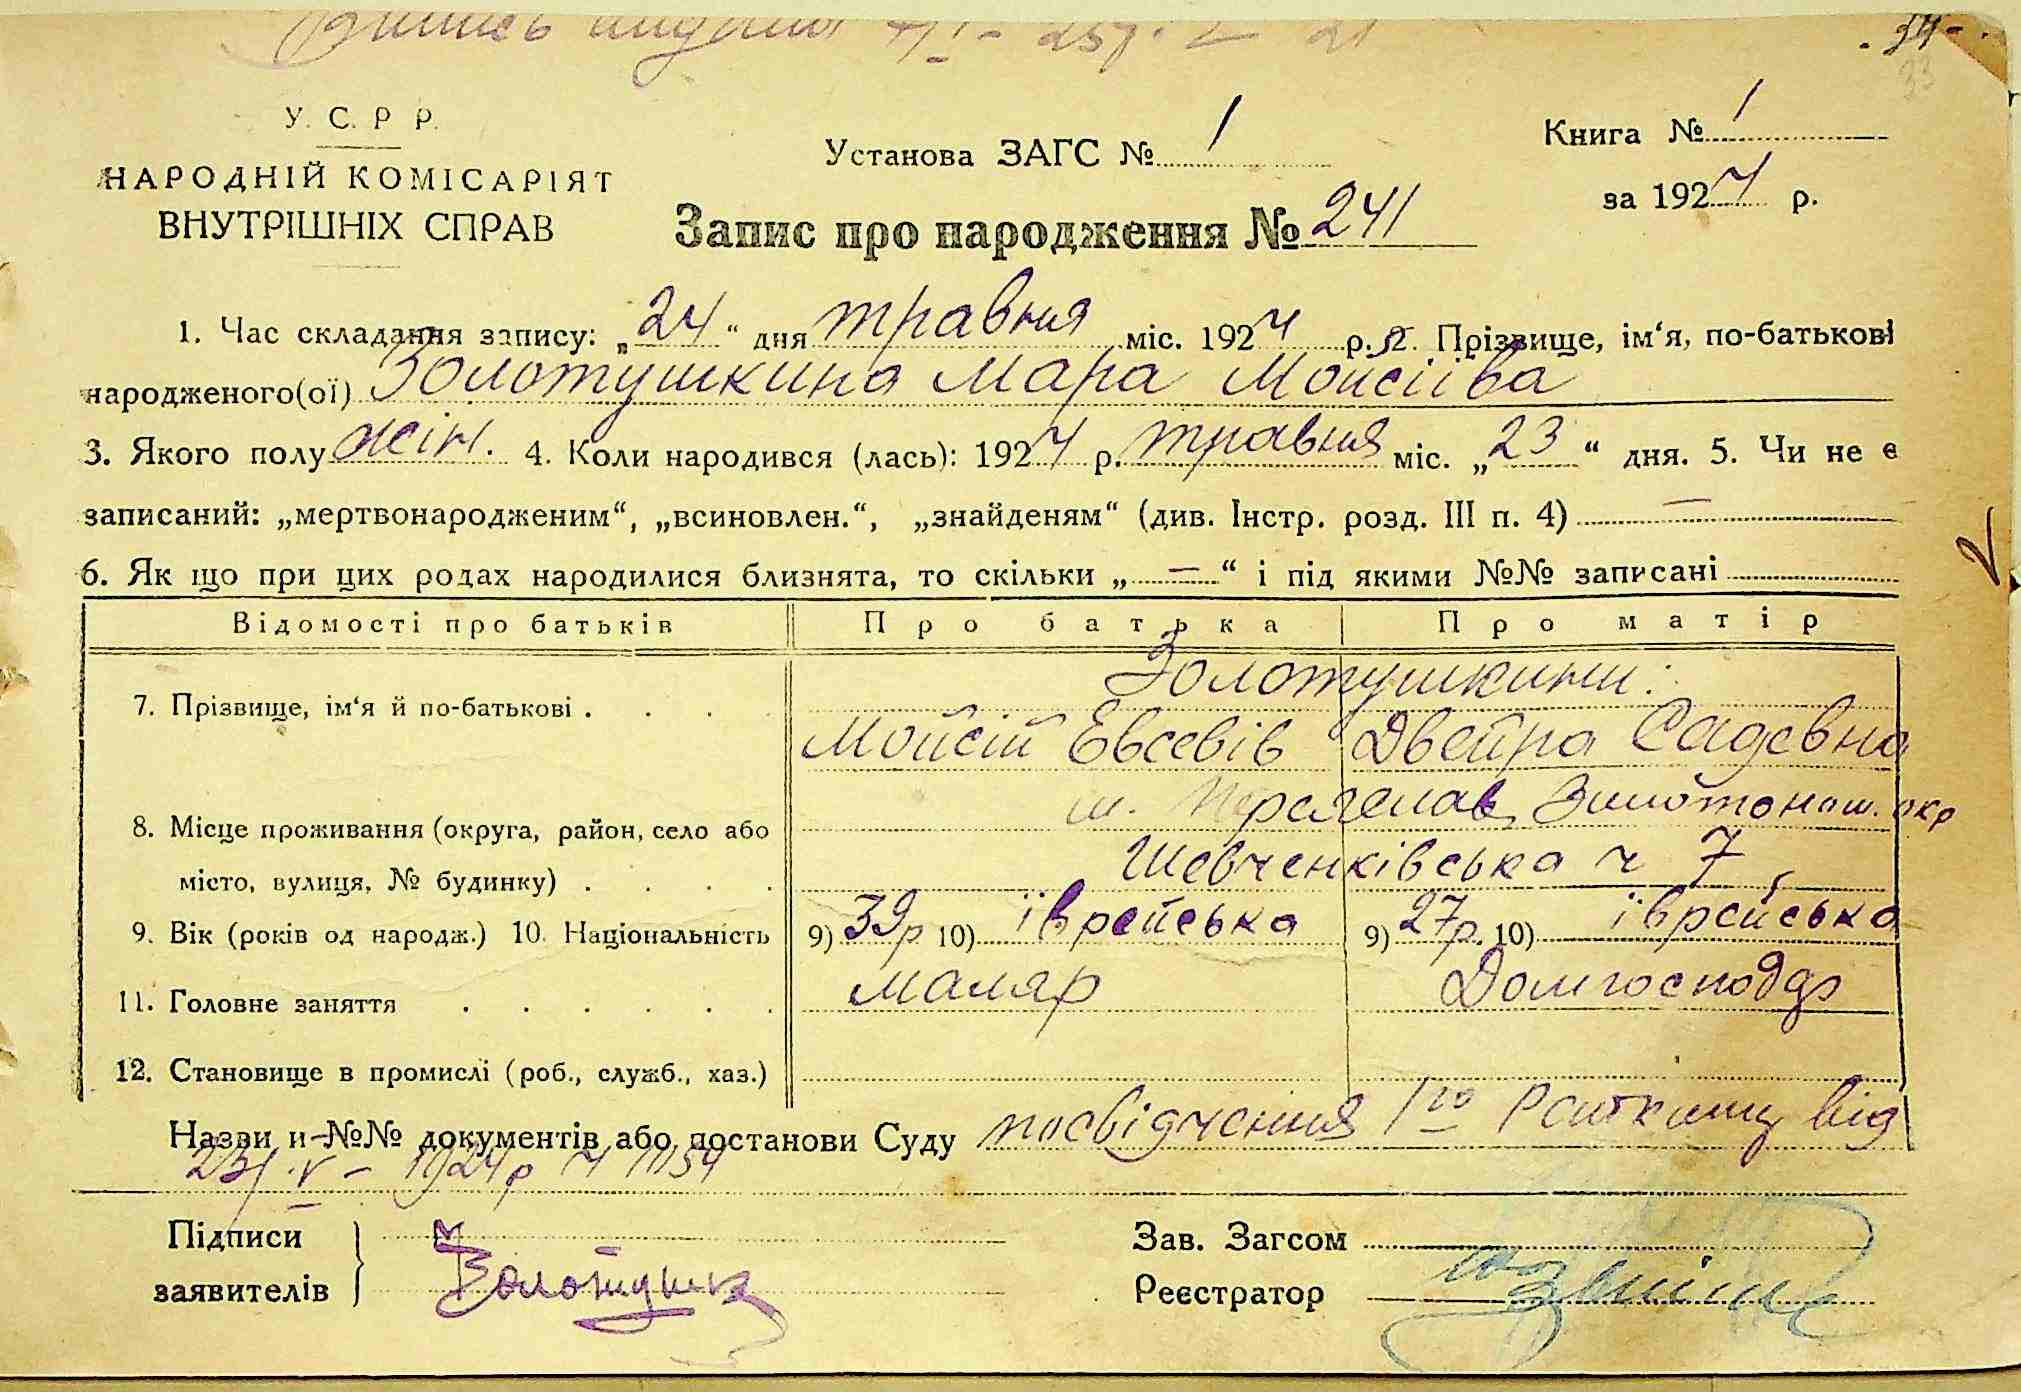 Випись видана
- 34 -
33
У. С. Р Р.
НАРОДНІЙ КОМІСАРІЯТ
ВНУТРІШНІХ СПРАВ
Установа ЗАГС № 1
Книга № 1
за 1924 р.
Запис про народження № 241
1. Час складання запису: „24“ дня травня міс. 1924 р. 2. Прізвище, ім‘я, по-батькові
народженого(ої) Золотушкина Мара Мойсіїва
3. Якого полу жін. 4. Коли народився (лась): 1924 р. травня міс. „23“ дня. 5. Чи не є
записаний: „мертвонародженим“, „всиновлен.“, „знайденям“ (див. Інстр. розд. III п. 4) —
6. Як що при цих родах народилися близнята, то скільки „—“ і під якими №№ записані
Відомості про батьків Про батька Про матір
Золотушкини:
7. Прізвище, ім‘я й по-батькові . . . . Мойсій Евсевів Двейра Садевна
м. Переяслав, Золотонош. окр
8. Місце проживання (округа, район, село або
місто, вулиця, № будинку) . . . . Шевченківська ч 7
9. Вік (років од народж.) 10. Національність 9) 39р 10) їврейська 9) 27р. 10) їврейська
11. Головне заняття . . . . . . маляр Домгосподр
12. Становище в промислі (роб., служб., хаз.)
Назви и №№ документів або постанови Суду посвідчення 1го Райткому від
23/V - 1924р ч 1154
Підписи
заявителів
Золотушк
Зав. Загсом
Реєстратор